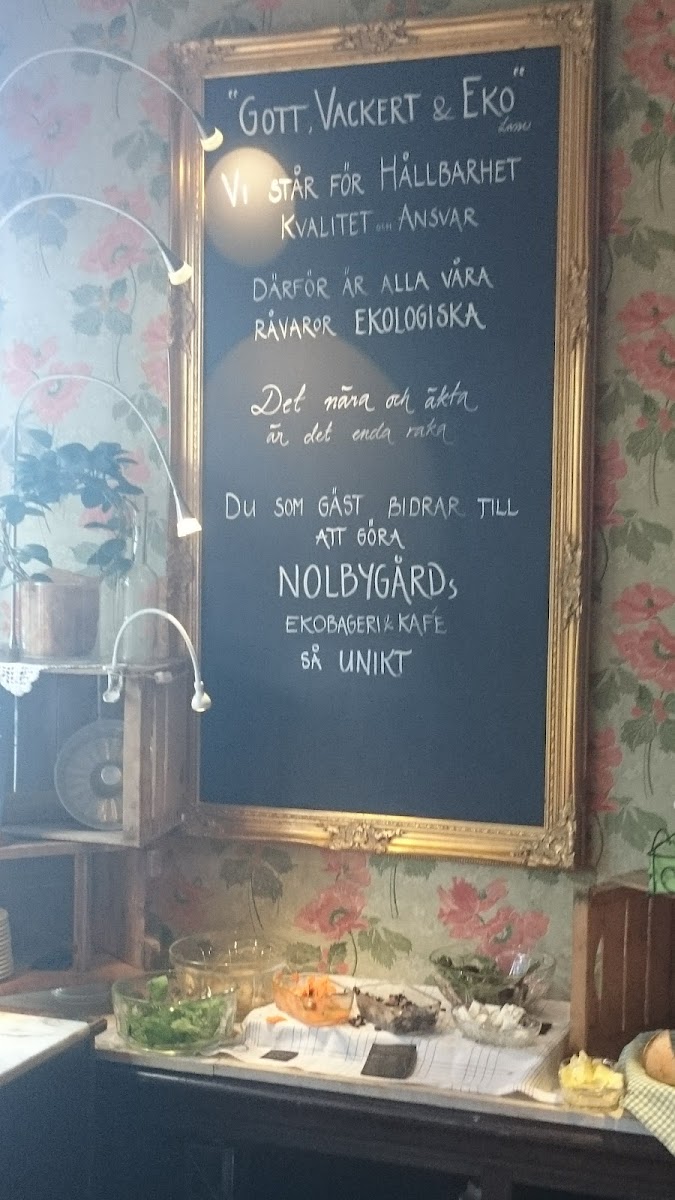 "GOTT, VACKERT & EKO"
VI STÅR FÖR HÅLLBARHET
KVALITET OCH ANSVAR
DÄRFÖR ÄR ALLA VÅRA
RÅVAROR EKOLOGISKA
Det nära och äkta
är det enda raka
DU SOM GÄST BIDRAR TILL
ATT GÖRA
NOLBYGÅRDs
EKOBAGERI & KAFÉ
SÅ UNIKT